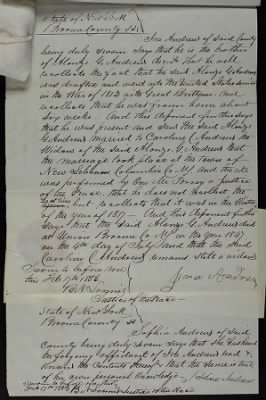 State of New York
Broome County SS.
Ira Andrews of said County
being duly sworn Says that he is the brother
of Alonzo G. Andrews dec'd that he well
recollects the fact that the said Alonzo G Andrews
was drafted and went into the United States service
in the War of 1812 with Great Brittain and
recollects that he was from home about
six weeks. And this deponent further says
that he was present and saw the said Alonzo
G Andrews married to Caroline C Andrews the
Widow of the said Alonzo G. Andrews that
the marriage took place at the Town of
New Lebanon Columbia Co NY and the
was performed by One Mr a Justice
of the Peace that he does not recollect the
but recollects that it was in the Winter
of the year of 1817 — And this deponent further
Says that the said Alonzo G. Andrews died
at Union Broome Co NY in the year
on the day of July and that the said
Caroline C Andrews remains still a widow
Sworn to before me
this Feb 17th 1855
Ira Andrews
Justice of the Peace
State of New York
Broome County SS
Sophia Andrews of said
County being duly sworn Says that she has heard
the foregoing affidavit of Ira Andrews read &
knows the contents thereof that the same is true
of her own personal knowledge
Sophia Andrews
Sworn to before me this
Feb 17th 1855
Justice of the Peace